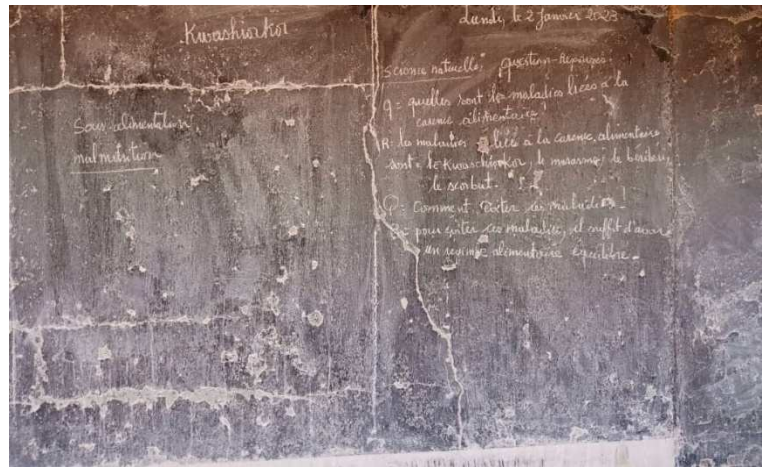 Kwashiorkor
Sous-alimentation
malnutrition
Lundi, le 2 Janvier 2023
Science naturelle: question-Réponses.
Q= quelles sont les maladies liées à la
carence alimentaire
R: les maladies liées à la carence alimentaire
sont = le Kwaschiorkor, le marasme, le béribéri,
le scorbut.
Q= Comment éviter ces maladies !
R= pour éviter ces maladies, il suffit d'avoir
un régime alimentaire équilibre.